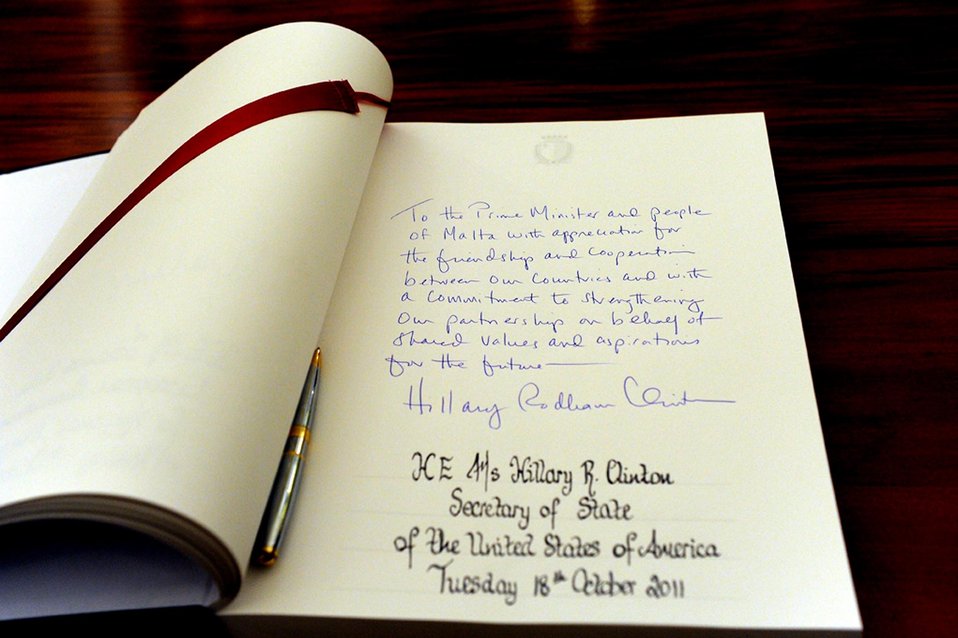 To the Prime Minister and people
of Malta with appreciation for
the friendship and cooperation
between our countries and with
a commitment to strengthening
our partnership on behalf of
shared values and aspirations
for the future—
Hillary Rodham Clinton
HE Ms Hillary R. Clinton
Secretary of State
of the United States of America
Tuesday 18th October 2011